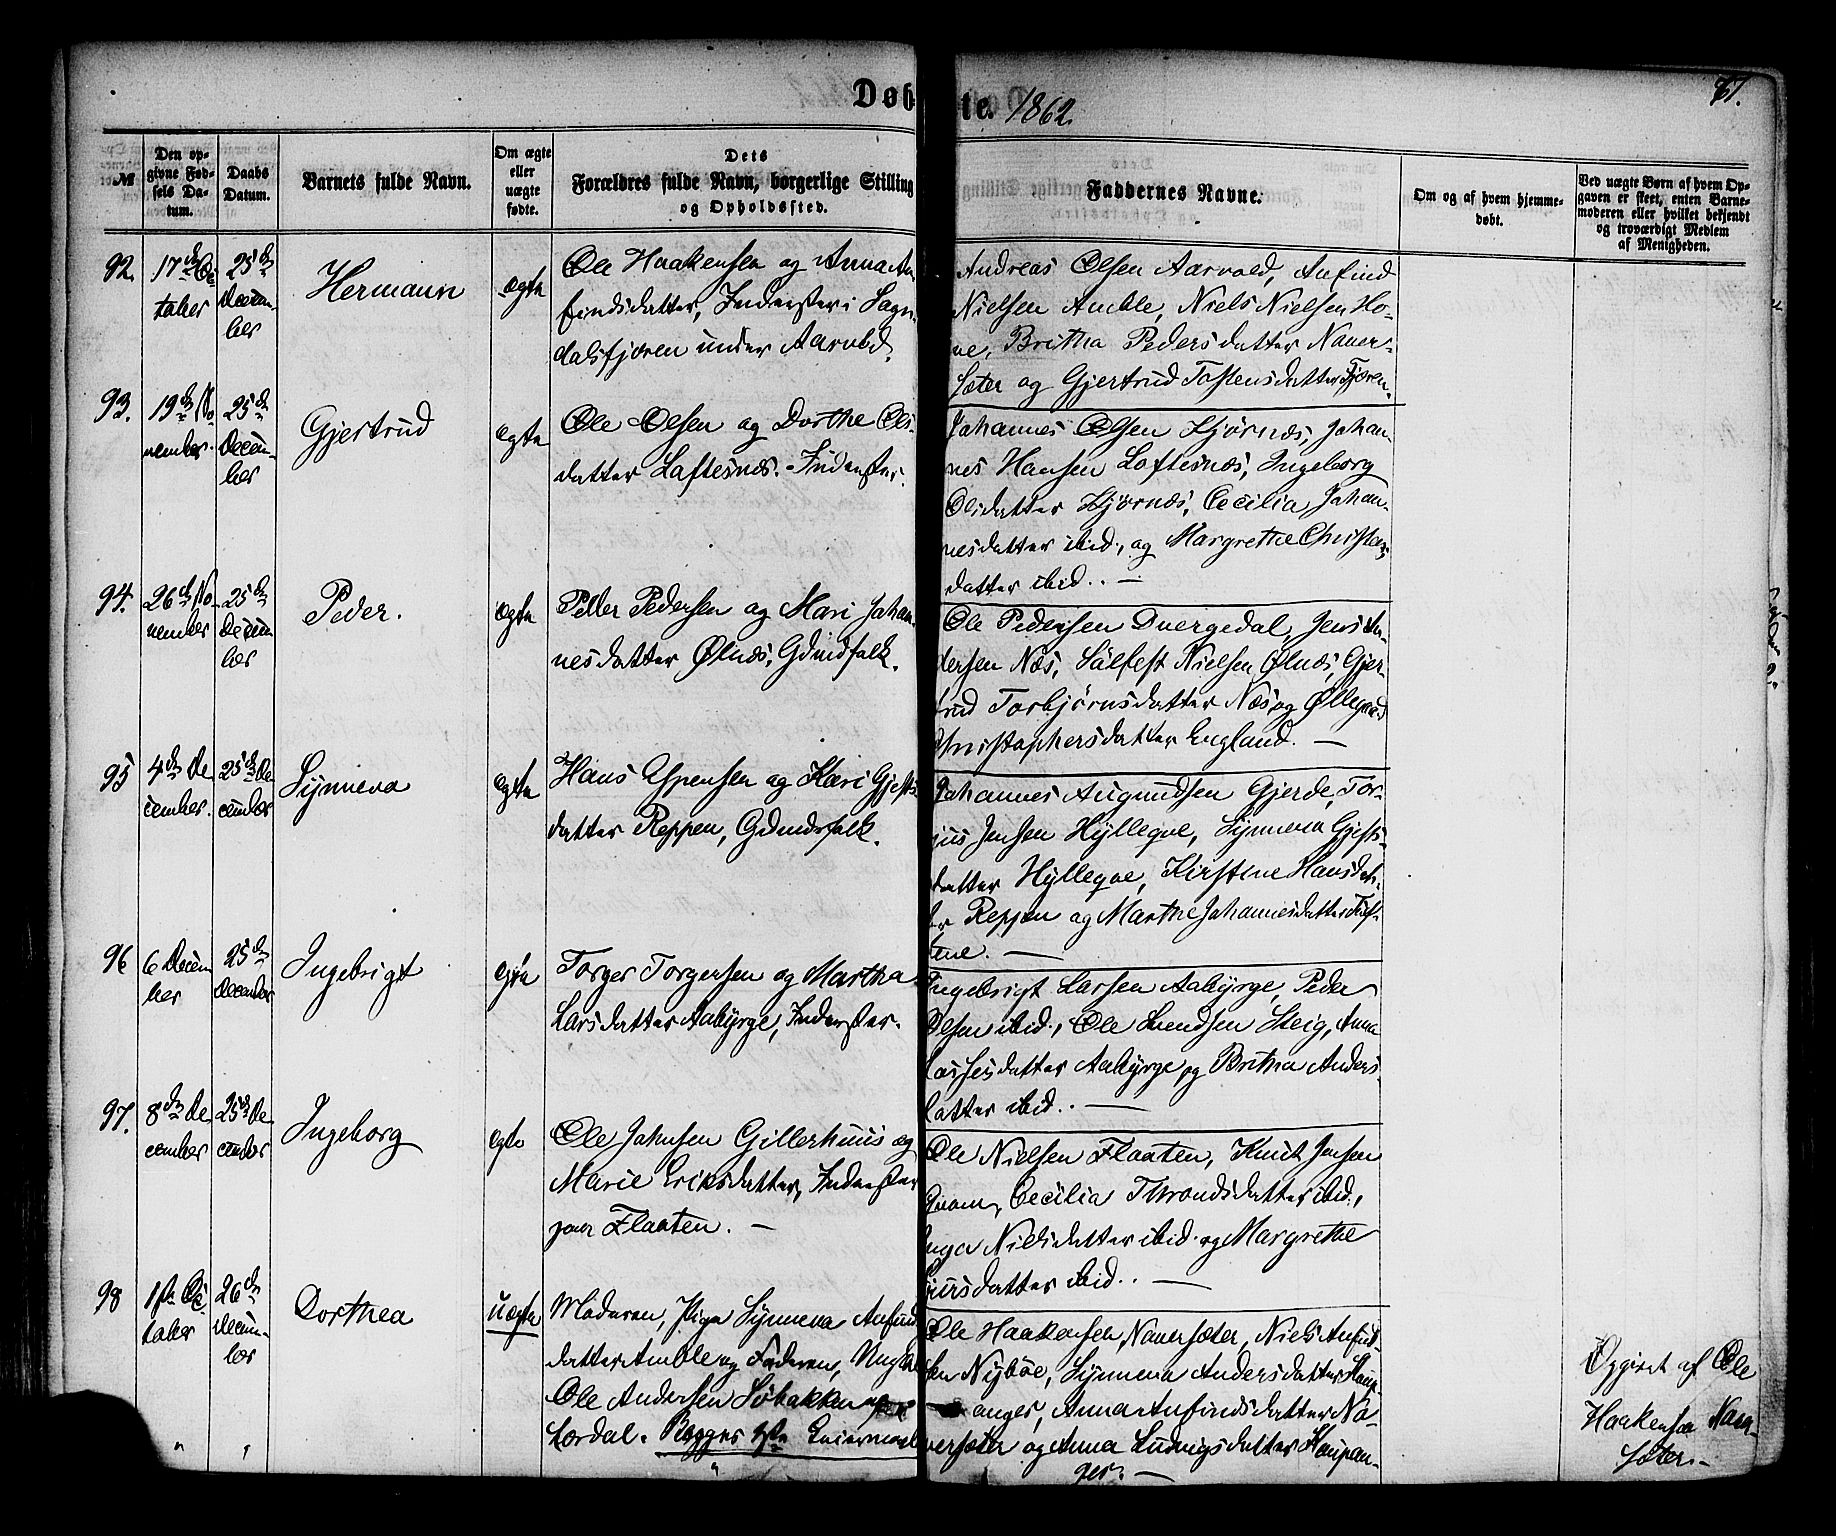 Døb
te. 1862.
61.
№
Den op-
givne Fød-
sels Da-
tum.
Daabs
Datum.
Barnets fulde Navn.
Om ægte
eller
uægte
fødte.
Dets
Forældres fulde Navn, borgerlige Stilling
og Opholdssted.
Faddernes Navne.
Om og af hvem hjemme-
døbt.
Ved uægte Børn af hvem Op-
gaven er skeet, enten Barne-
moderen eller hvilket bekjendt
og troværdigt Medlem
af Menigheden.
92.
17de Oc
tober
25de
Decem-
ber
Hermann
ægte
Ole Haakensen og Anna An-
findsdatter, Inderster i Sogn-
dalsfjøren under Aarvold.
Andreas Olsen Aarvold, Anfind
Nielsen Amble, Niels Nielsen Ho-
ve, Britha Pedersdatter Naver-
sæter og Gjertrud Tostensdatter Fjøren.
93.
19de No
vember.
25de
Decem-
ber
Gjertrud
ægte
Ole Olsen og Dorthe Ols-
datter Loftesnæs. Inderster.
Johannes Olsen Kjørnæs, Johan-
nes Hansen Loftesnæs, Ingeborg
Olsdatter Kjørnæs, Cecilia Johan-
nesdatter ibid., og Margrethe Christens
datter ibid.. —
94.
26de No-
vember
25de
Decem
ber
Peder.
ægte
Peder Pedersen og Mari Johan-
nesdatter Ølnæs, Gdmdfolk.
Ole Pedersen Dvergedal, Jens An-
dersen Næs, Sølfest Nielsen Ølnæs, Gjer-
trud Torbjørnsdatter Næs og Øllegaard
Christophersdatter England. —
95
4de De
cember.
25de De
cember
Synneva
ægte
Hans Espensen og Kari Gjests-
datter Reppen, Gdmdsfolk.
Johannes Augundsen Gjerde, Tor-
jus Jensen Hyllegve, Synneva Gjests-
datter Hyllegve, Kirstine Hansdat-
ter Reppen og Marthe Johannesdatter Tuf-
tene. —
96
6 Decem
ber
25de
December
Ingebrigt
ægte
Torger Torgersen og Martha
Larsdatter Aabyrge, Inderster.
Ingebrigt Larsen Aabyrge, Peder
Olsen ibid., Ole Svendsen Steig, Anna
Lassesdatter Aabyrge og Britha Anders-
datter ibid.. —
97.
8de De
cember
25de De
cember
Ingeborg
ægte
Ole Johnsen Gillerhuus og
Marie Eriksdatter, Inderster
paa Flaaten. —
Ole Nielsen Flaaten, Knut Jensen
Qvam, Cecilia Throndsdatter ibid.,
Inga Nielsdatter ibid. og Margrethe
datter ibid.. —
98
1ste Oc
tober
26de
Decem-
ber
Dorthea
uægte
Moderen, Pige Synneva Anfind
datter Amble og Faderen, Ungkarl
Ole Andersen Søbakken
Lærdal. Begges 1ste Leiermaal
Ole Haakensen Naversæter, Niels Anfind-
sen Nybøe, Synneva Andersdatter Kaup-
anger, Anna Anfindsdatter Na-
versæter og Anna Ludvigsdatter Kaupan-
ger. —
Opgivet af Ole
Haakensen Naver-
sæter. —